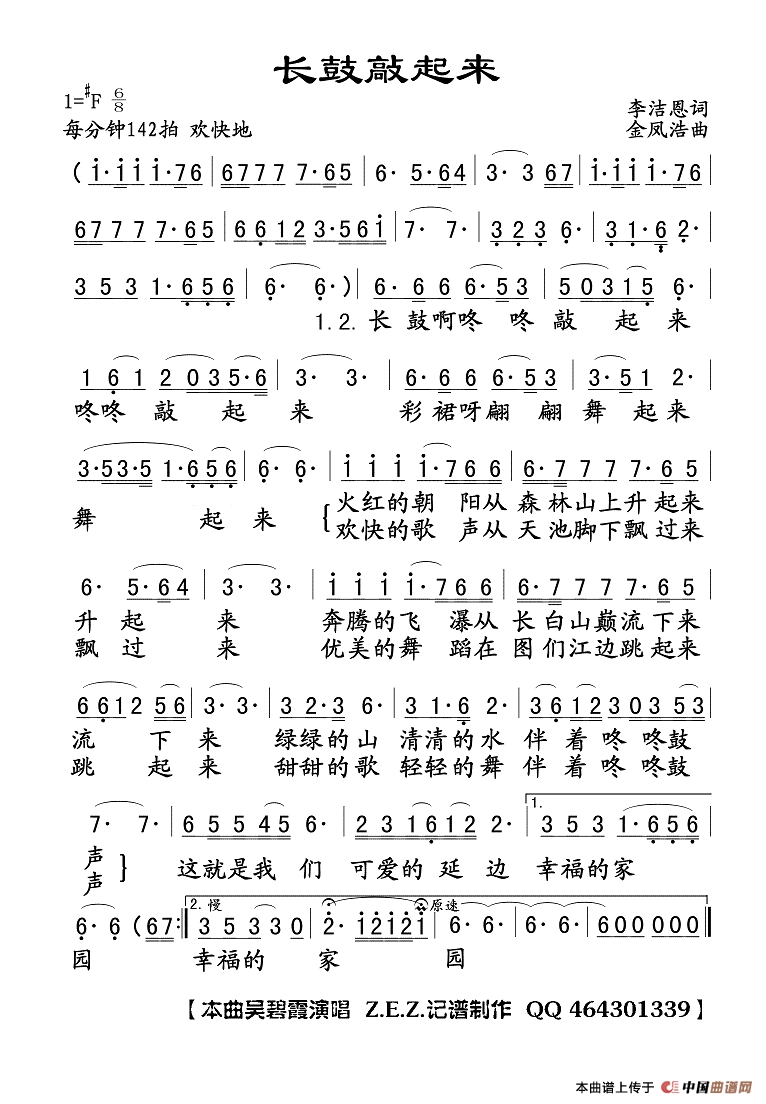 长鼓敲起来
1=#F 6/8
李洁恩词
每分钟142拍 欢快地
金凤浩曲
( i·i i i·7 6 | 6 7 7 7 7·6 5 | 6· 5·6 4 | 3· 3 6 7 | i·i i i·7 6 |
6 7 7 7 7·6 5 | 6 6 1 2 3·5 6 i | 7· 7· | 3 2 3 6· | 3·1 6 2· |
3 5 3 1·6 5 6 | 6· 6· ) | 6· 6 6 6·5 3 | 5 0 3 1 5 6 |
1.2.长 鼓啊咚 咚 敲 起 来
1 6 1 2 0 3 5·6 | 3· 3· | 6· 6 6 6·5 3 | 3·5 1 2· |
咚咚 敲 起 来 彩 裙呀翩 翩 舞 起来
3·5 3·5 1·6 5 6 | 6· 6· | i i i i·7 6 6 | 6·7 7 7 7·6 5 |
舞 起 来 { 火红的朝 阳从 森 林山上升 起来
欢快的歌 声从 天 池脚下飘 过来
6· 5·6 4 | 3· 3· | i i i i·7 6 6 | 6·7 7 7 7·6 5 |
升 起 来 奔腾的飞 瀑从 长 白山巅流 下来
飘 过 来 优美的舞 蹈在 图 们江边跳 起来
6 6 1 2 5 6 | 3· 3· | 3 2·3 6· | 3 1·6 2· | 3 6 1 2 3 0 3 5 3 |
流 下 来 绿绿的山 清清的水 伴 着 咚 咚鼓
跳 起 来 甜甜的歌 轻轻的舞 伴 着 咚 咚鼓
1.
7· 7· | 6 5 5 4 5 6· | 2 3 1 6 1 2 2· | 3 5 3 1·6 5 6 |
声 } 这就是我 们 可爱的 延 边 幸福的家
声
2.慢 原速
6· 6 ( 6 7 :| 3 5 3 3 0 | 2· i 2 i 2 i | 6· 6· | 6· 6· | 6 0 0 0 0 0 ‖
园 幸福的 家 园
【本曲吴碧霞演唱 Z.E.Z.记谱制作 QQ 464301339】
本曲谱上传于 中国曲谱网